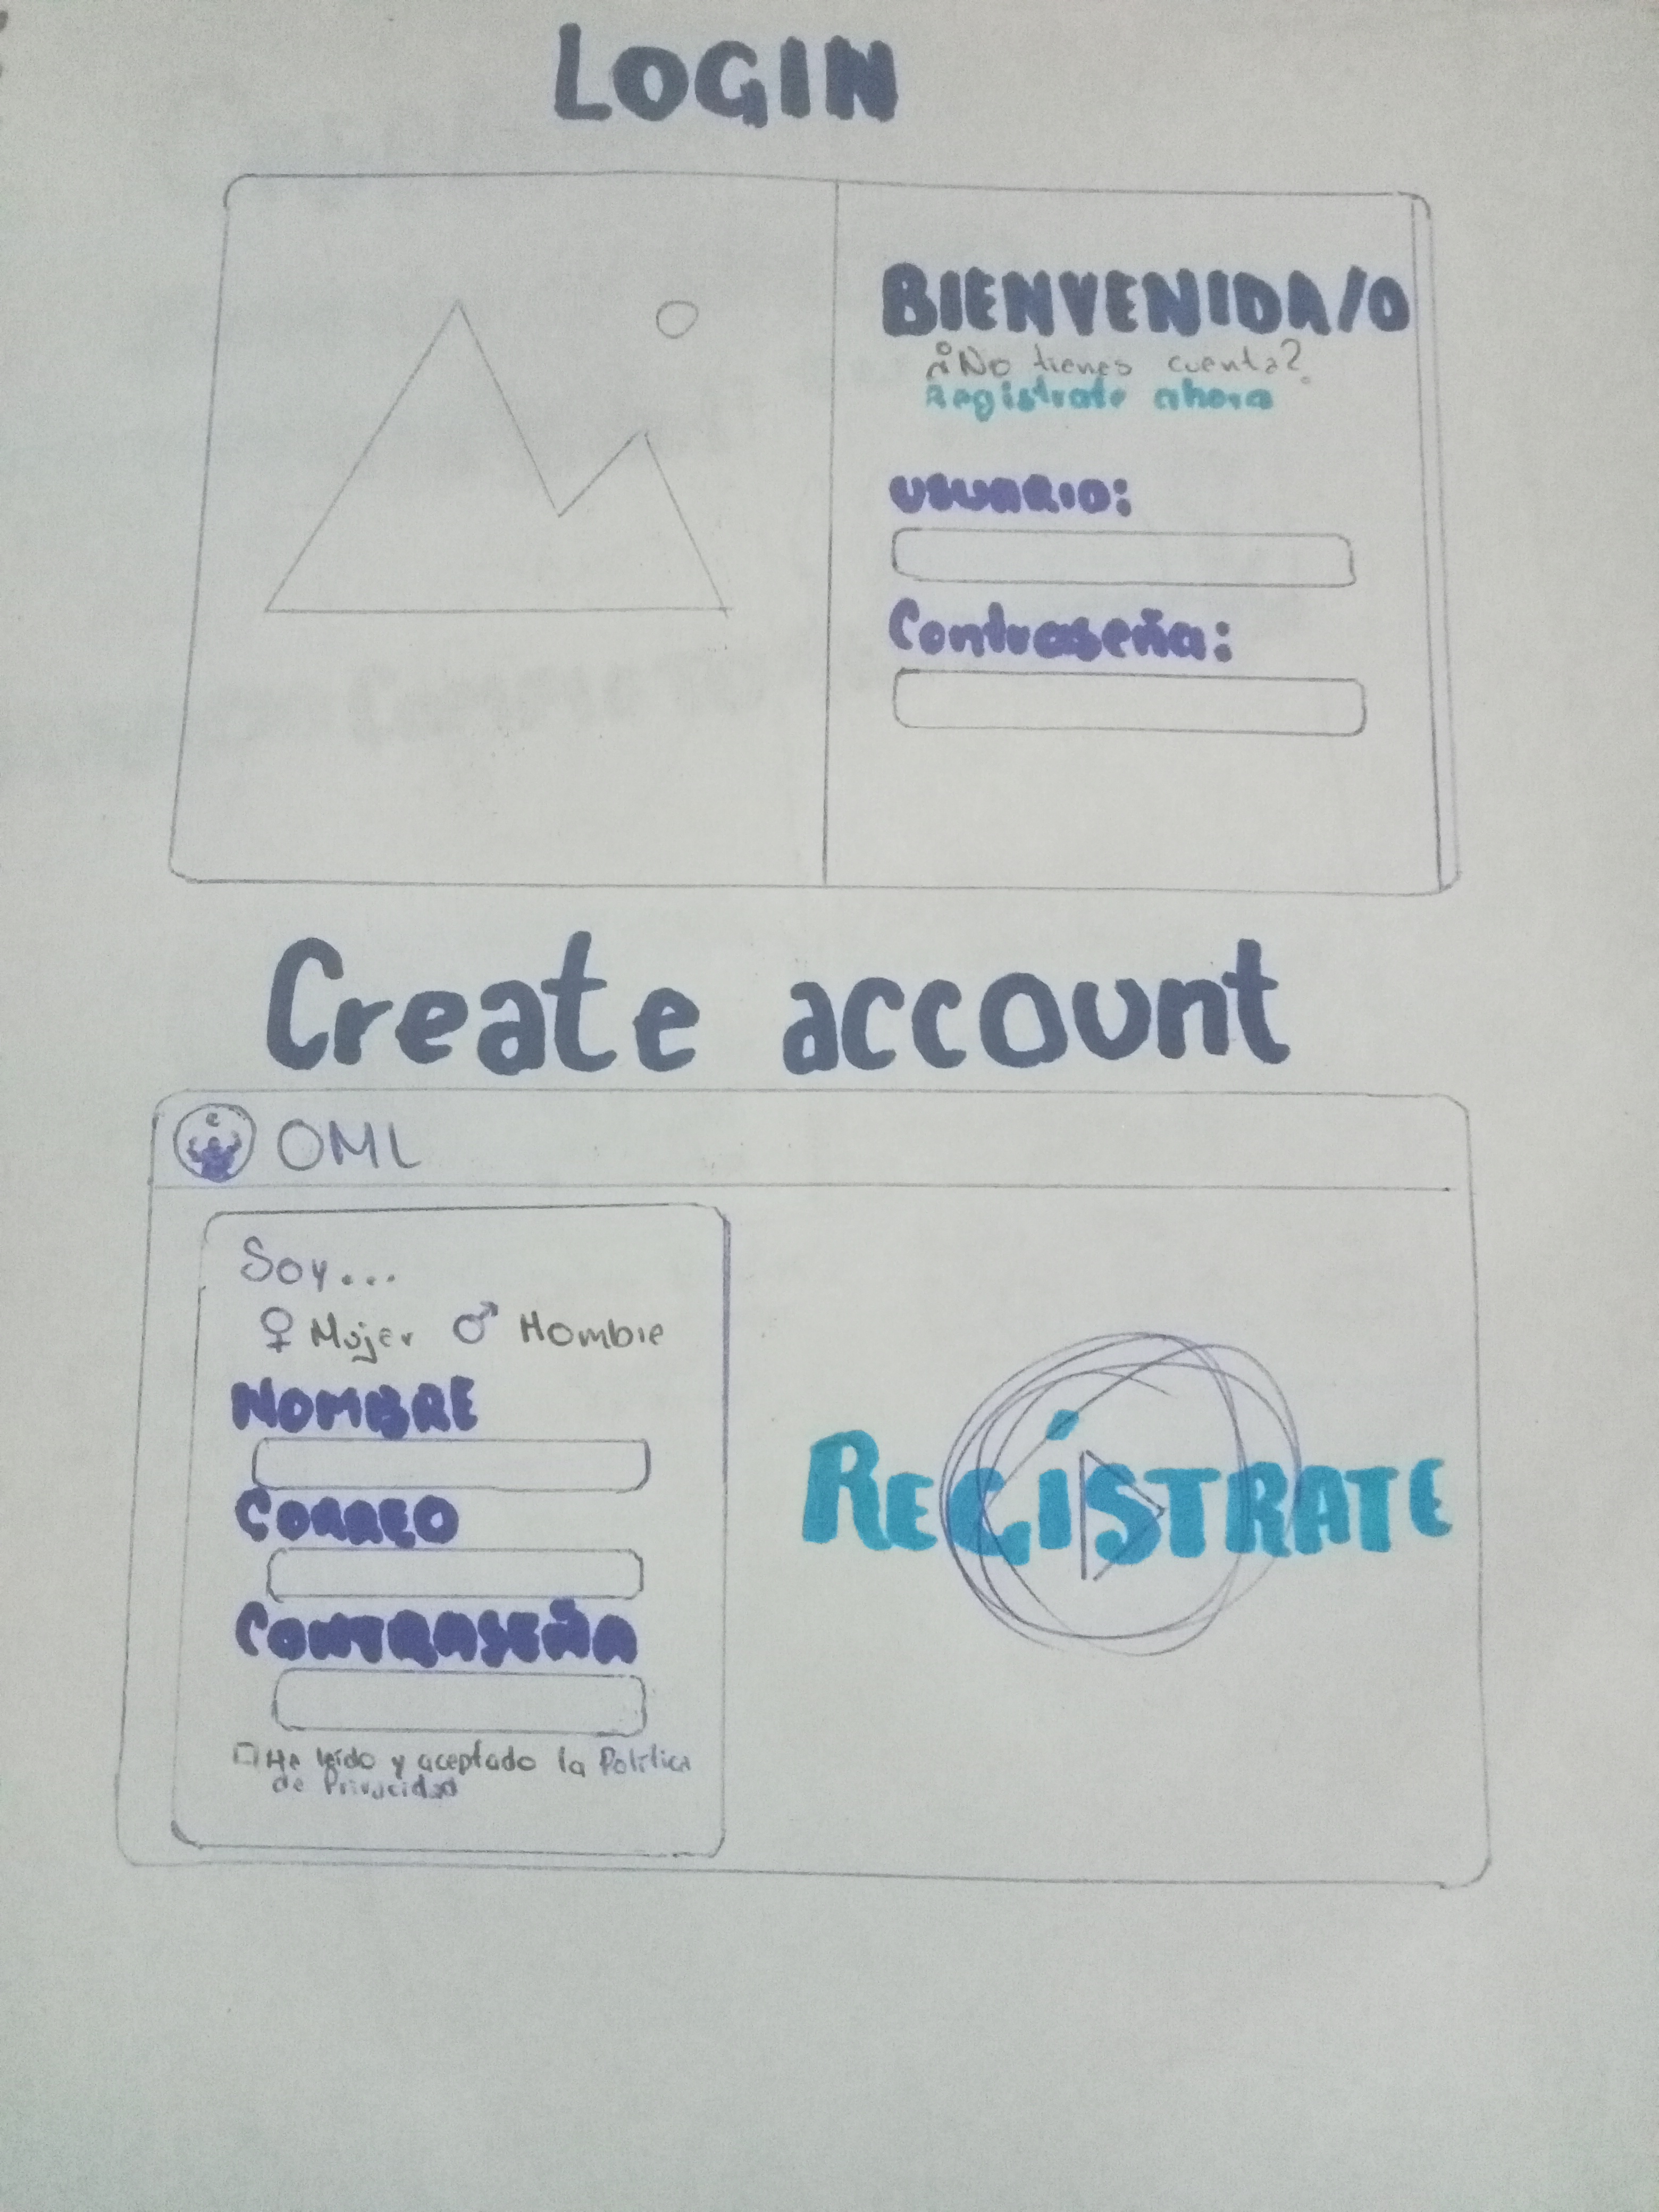 LOGIN
BIENVENIDA/O
¿No tienes cuenta?
Registrate ahora
USUARIO:
Contraseña:
Create account
OML
Soy...
♀ Mujer ♂ Hombre
NOMBRE
CORREO
CONTRASEÑA
He leído y aceptado la Política
de Privacidad
REGÍSTRATE